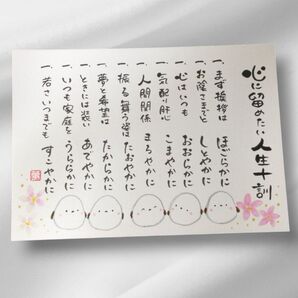 心に留めたい人生十訓
一、まず挨拶は ほがらかに
一、お陰さまでと しとやかに
一、心はいつも おおらかに
一、気配り肝心 こまやかに
一、人間関係 まろやかに
一、振る舞う姿は たおやかに
一、夢と希望は たからかに
一、ときには装い あでやかに
一、いつも家庭を うららかに
一、若さいつまでも すこやかに